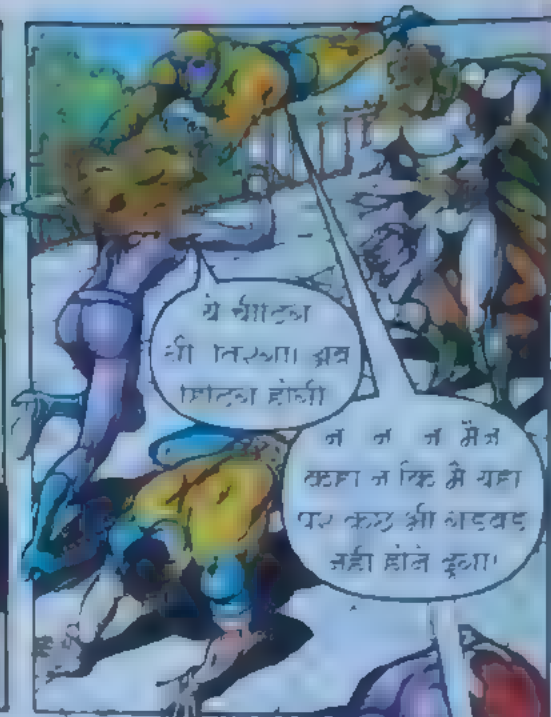 ये चीटिंग
थी तिरंगा। अब
फाइटिंग होगी
न न न मैंने
कहा न कि मैं यहां
पर कुछ भी गड़बड़
नहीं होने दूंगा।